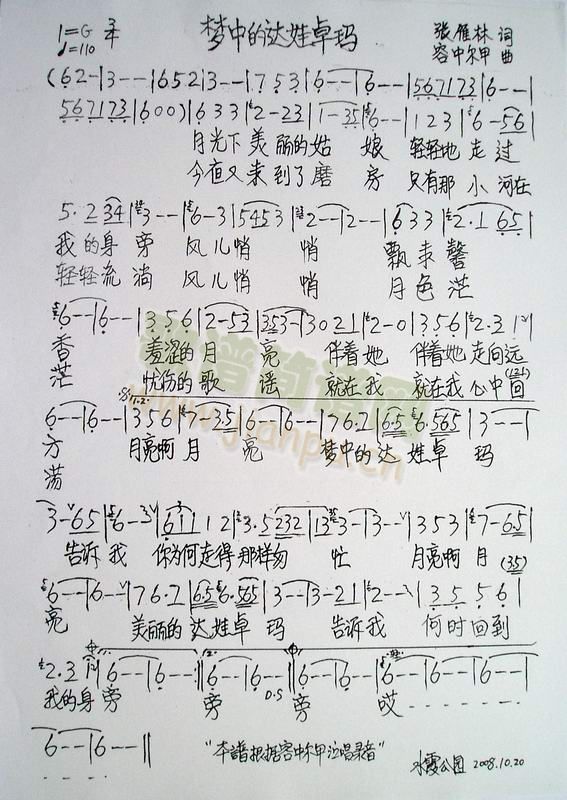 梦中的达娃卓玛
1=G 3/4
♩=110
张雁林 词
容中尔甲 曲
(62-|3--|1652|3--|1753|6--|6--|567173|6--|
567173|600)|633|2-23|1-35|6--|123|6-56|
月光下 美 丽的 姑 娘 轻轻地 走 过
今夜又 来 到了 磨 房 只有那 小 河在
5·234|3--|6-3|5453|2--|2--|633|2·165|
我的身 旁 风儿悄 悄 飘来馨
轻轻流 淌 风儿悄 悄 月色茫
6--|6--|356|2-53|353-|3021|2-0|356|2·31|
香 羞涩的 月 亮 伴着她 伴着她 走向远
茫 忧伤的 歌 谣 就在我 就在我 心中回
6--|6--|356|7-35|6--|6--|76·2|6·56·565|3--|
方 月亮啊 月 亮 梦中的 达 娃卓 玛
荡
3-65|6-3|6112|3·5232|133-|3--|353|7-65|
告诉 我 你为何走得 那样匆 忙 月亮啊 月 (35)
6--|6--|76·2|6·56·565|3--|3-21|2--|3556|
亮 美丽的 达娃卓 玛 告诉 我 何时回到
2·3|6--|6--:||6--|6--|6--|6--|6--|6--|6--|
我的身 旁 旁 D.S 旁 哎
6--|6--||
"本谱根据容中尔甲演唱录音"
水霞公园 2008.10.20